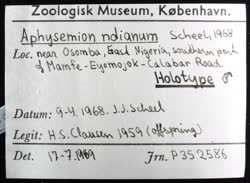 Zoologisk Museum, København.
Aphysemion ndianum Scheel, 1968
Loc. near Osomba, East Nigeria, southern part
of Mamfe-Eyomojok-Calabar Road.
Holotype ♂
Datum: 9-4. 1968. J.J. Scheel
Legit: H.S. Clausen 1959 (offspring)
Det. 17-7.1969 Jrn. P352586